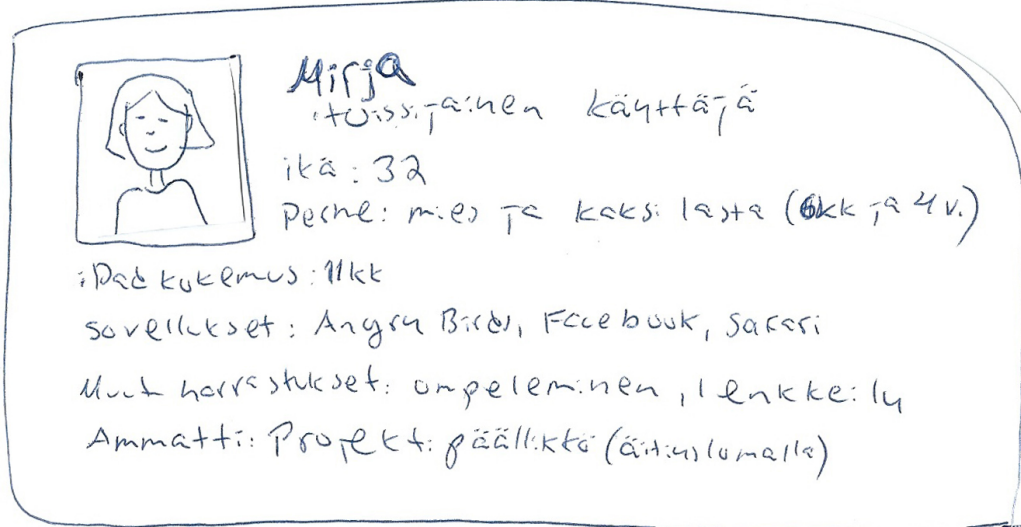 Mirja
toissijainen käyttäjä
ikä: 32
Perhe: mies ja kaksi lasta (6kk ja 4 v.)
iPad kokemus: 11kk
Sovellukset: Angry Birds, Facebook, Safari
Muut harrastukset: ompeleminen, lenkkeily
Ammatti: Projektipäällikkö (äitiyslomalla)